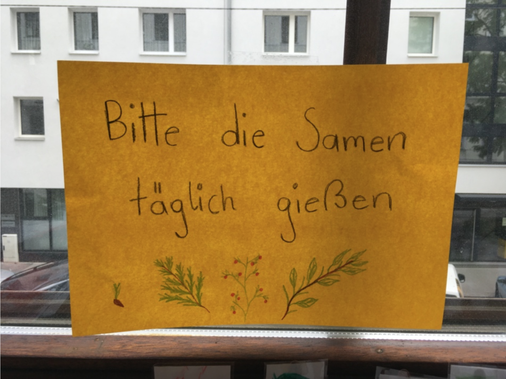 Bitte die Samen
täglich gießen